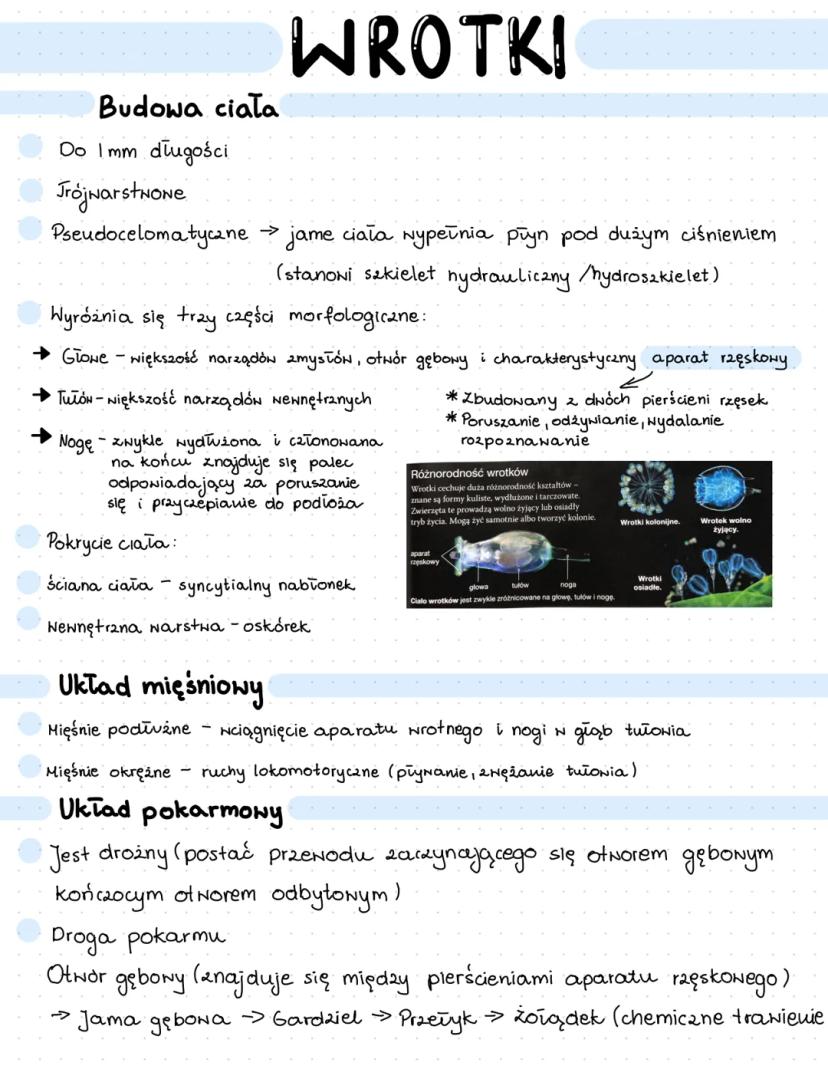 WROTKI
Budowa ciała
Do 1mm długości
Trójwarstwowe
Pseudocelomatyczne → jame ciała wypełnia płyn pod dużym ciśnieniem
(stanowi szkielet hydrauliczny /hydroszkielet)
Wyróżnia się trzy części morfologiczne:
→ Głowe - większość narządów zmysłów, otwór gębowy i charakterystyczny aparat rzęskowy
→ Tułów - większość narządów wewnętrznych
* Zbudowany z dwóch pierścieni rzęsek
* Poruszanie, odżywianie, wydalanie
rozpoznawanie
→ Nogę - zwykle wydłużona i członowana
na końcu znajduje się palec
odpowiadający za poruszanie
się i przyczepianie do podłoża
Różnorodność wrotków
Wrotki cechuje duża różnorodność kształtów –
znane są formy kuliste, wydłużone i tarczowate.
Zwierzęta te prowadzą wolno żyjący lub osiadły
tryb życia. Mogą żyć samotnie albo tworzyć kolonie.
Wrotki kolonijne.
Wrotek wolno
żyjący.
aparat
rzęskowy
głowa
tułów
noga
Wrotki
osiadłe.
Ciało wrotków jest zwykle zróżnicowane na głowę, tułów i nogę.
Pokrycie ciała:
ściana ciała - syncytialny nabłonek
wewnętrzna warstwa - oskórek
Układ mięśniowy
Mięśnie podłużne - wciągnięcie aparatu wrotnego i nogi w głąb tułowia
Mięśnie okrężne - ruchy lokomotoryczne (pływanie, zwężanie tułowia)
Układ pokarmowy
Jest drożny (postać przewodu zaczynającego się otworem gębowym
kończocym otworem odbytowym)
Droga pokarmu
Otwór gębowy (znajduje się między pierścieniami aparatu rzęskowego)
→ Jama gębowa → Gardziel → Przełyk → żołądek (chemiczne trawienie